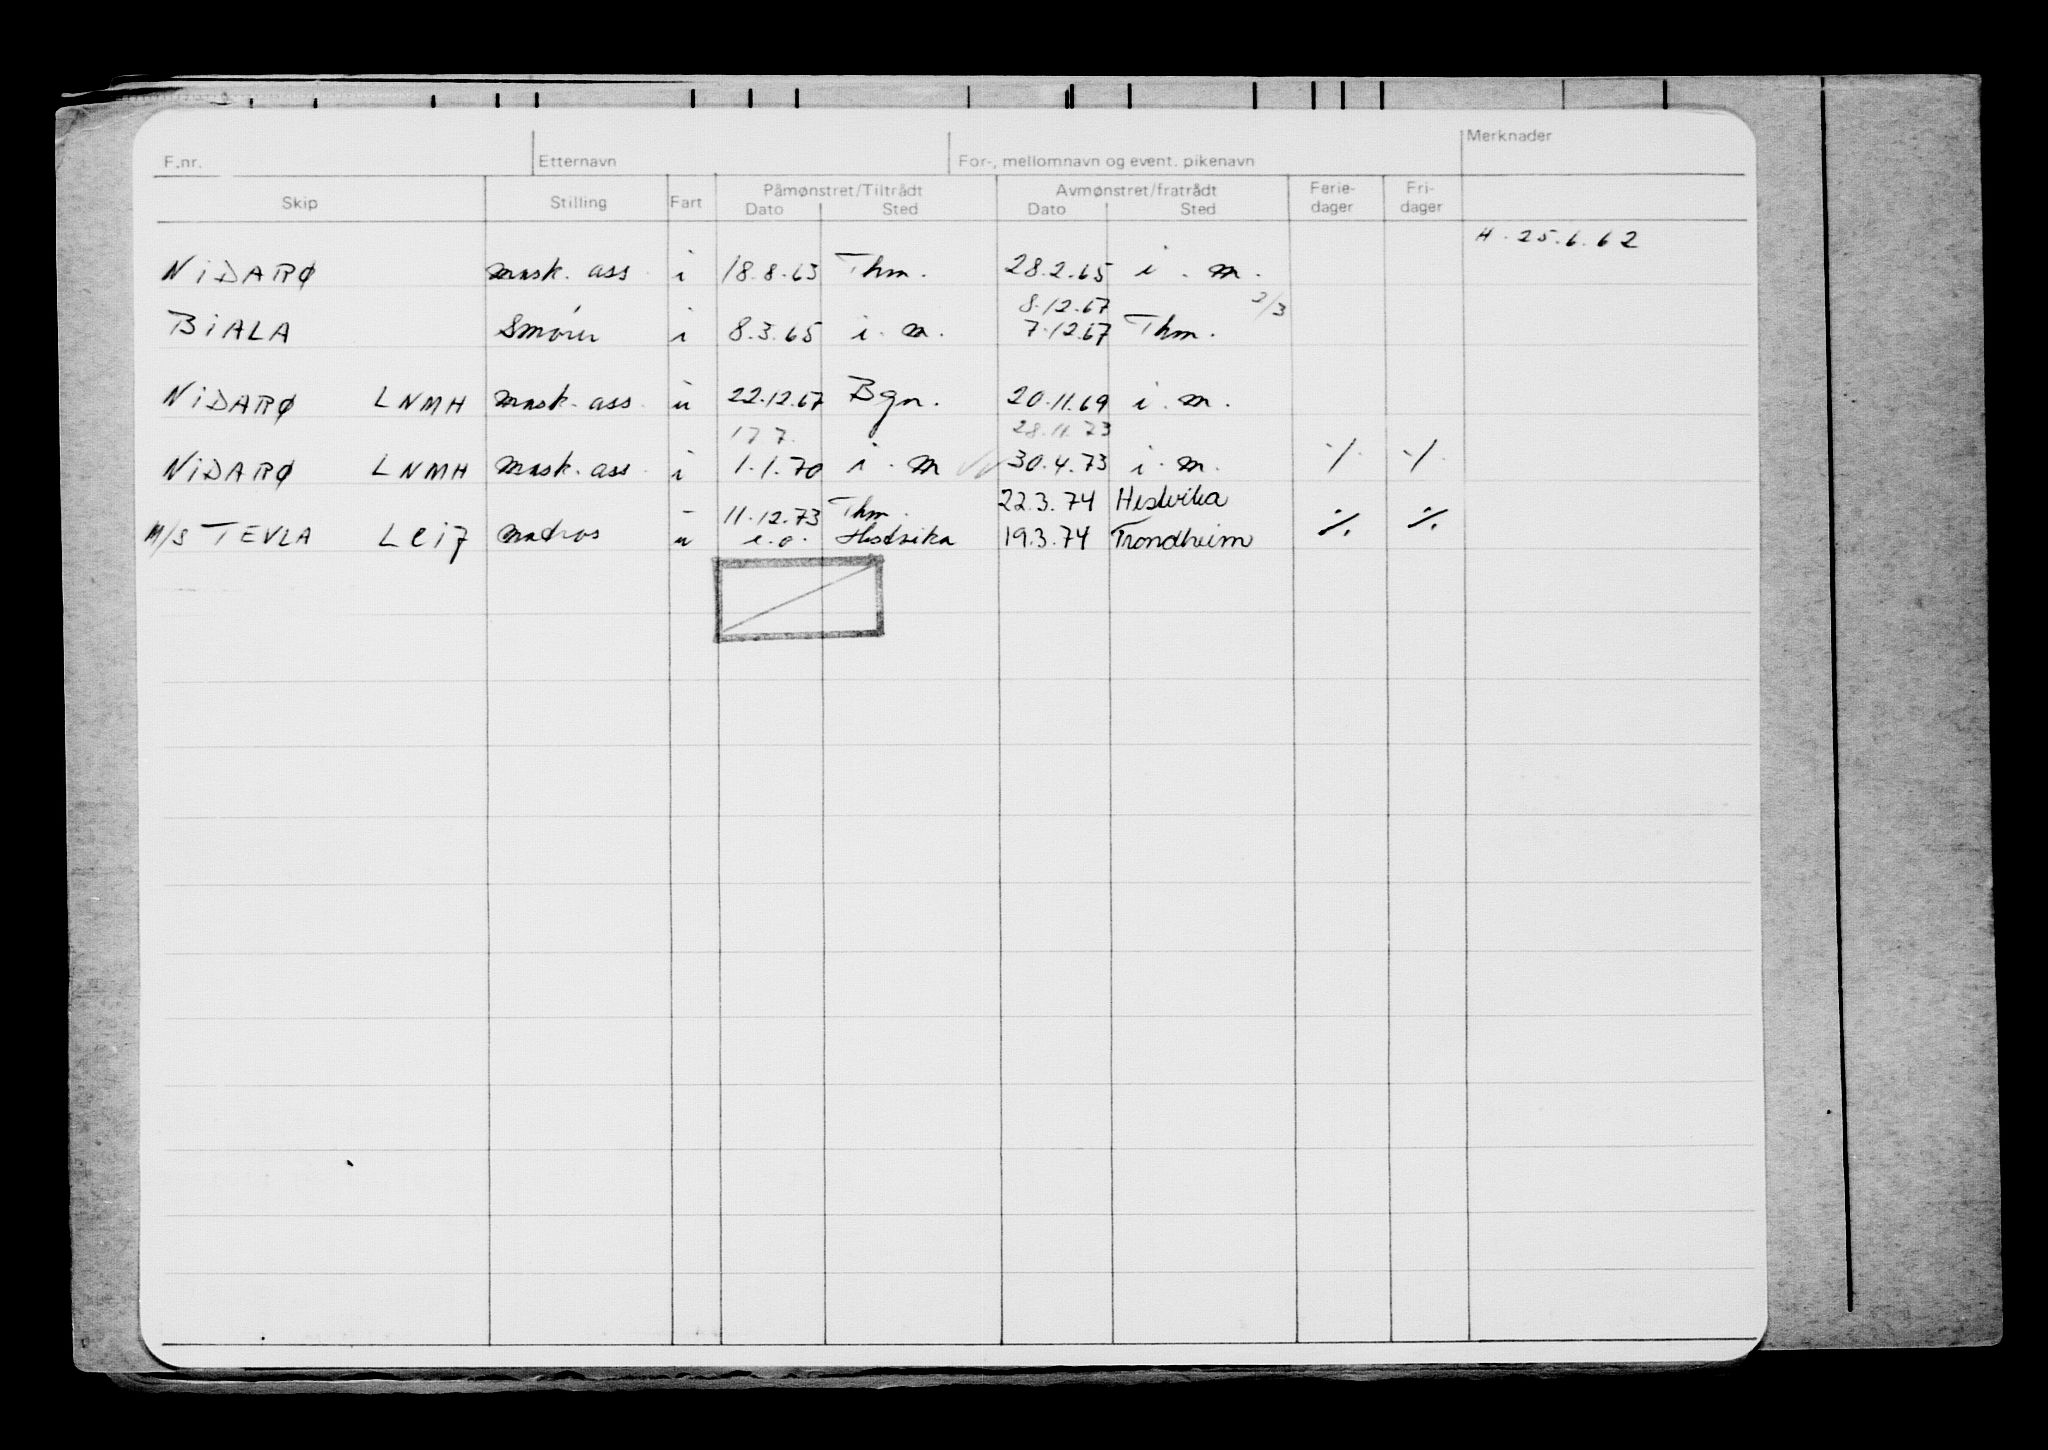 F.nr. Etternavn For-, mellomnavn og event. pikenavn Merknader
Skip Stilling Fart Påmønstret/Tiltrådt Dato Sted Avmønstret/fratrådt Dato Sted Ferie-dager Fri-dager
H. 25.6.62
NIDARØ mask. ass. i 18.8.63 Thm. 28.2.65 i. m.
8.12.67 2/3
BIALA Smører i 8.3.65 i. m. 7.12.67 Thm.
NIDARØ LNMH mask. ass. u 22.12.67 Bgn. 20.11.69 i. m.
17 7. 28.11.73
NIDARØ LNMH mask. ass. i 1.1.70 i. m 30.4.73 i. m. ./. ./.
11.12.73 Thm. 22.3.74 Hestvika
M/S TEVLA LCI7 matros u e.o. Hestvika 19.3.74 Trondheim ./. ./.